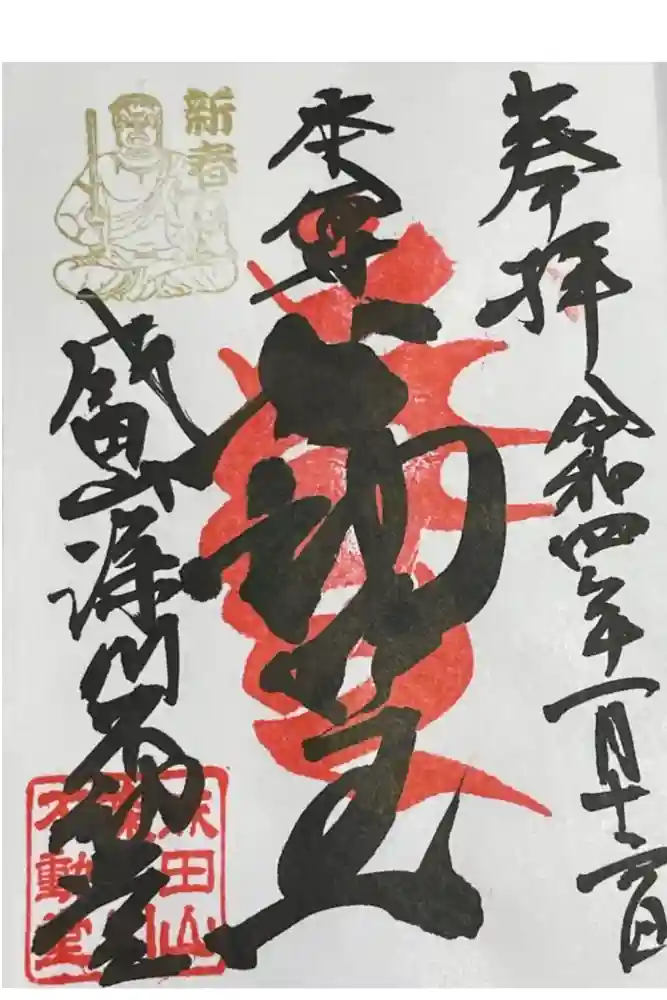 奉拝 令和四年一月十六日
本尊
不動明王
新春
成田山深川不動堂
成田山
深川
不動堂